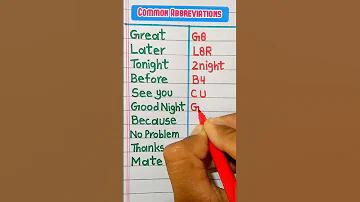 COMMON ABBREVIATIONS
Great G8
Later L8R
Tonight 2night
Before B4
See you C U
Good Night G
Because
No Problem
Thanks
Mate